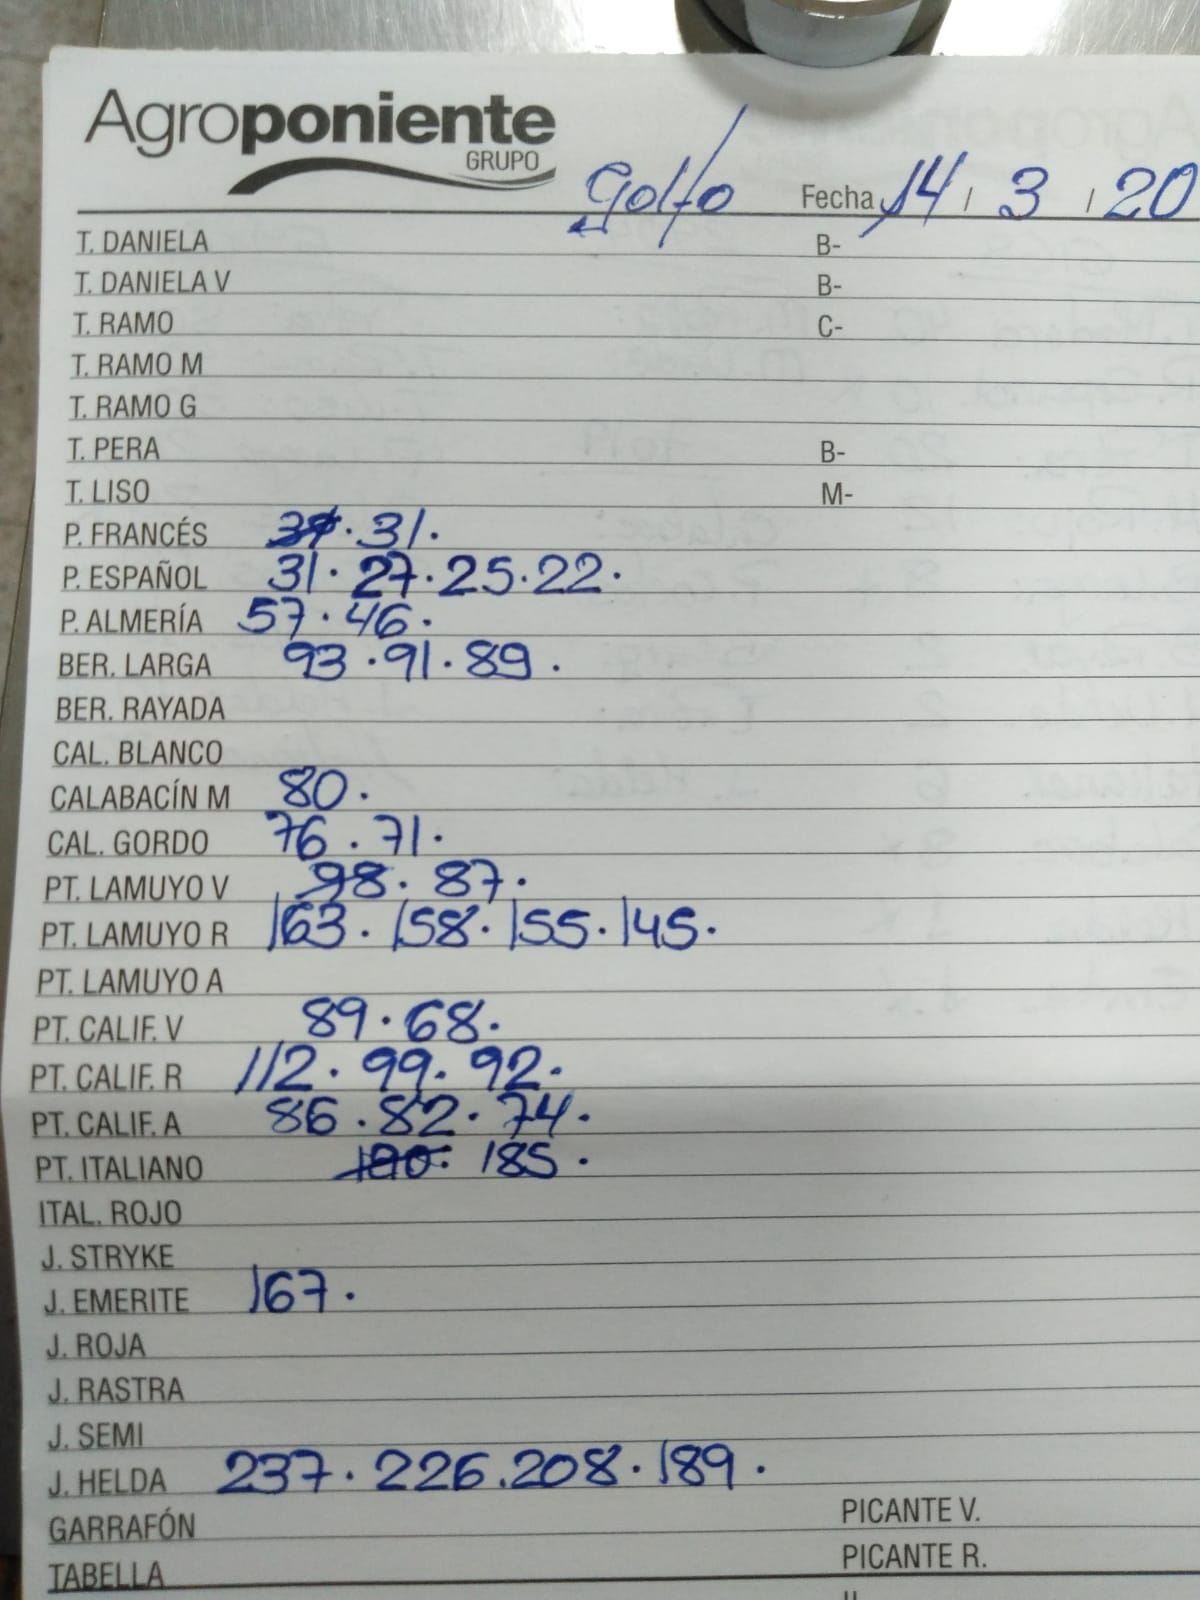 Agroponiente
GRUPO
Golfo Fecha 14 / 3 / 20
T. DANIELA B-
T. DANIELA V B-
T. RAMO C-
T. RAMO M
T. RAMO G
T. PERA B-
T. LISO M-
P. FRANCÉS 31.
P. ESPAÑOL 31. 27. 25. 22.
P. ALMERÍA 57. 46.
BER. LARGA 93. 91. 89.
BER. RAYADA
CAL. BLANCO
CALABACÍN M 80.
CAL. GORDO 76. 71.
PT. LAMUYO V 98. 87.
PT. LAMUYO R 163. 158. 155. 145.
PT. LAMUYO A
PT. CALIF. V 89. 68.
PT. CALIF. R 112. 99. 92.
PT. CALIF. A 86. 82. 74.
PT. ITALIANO 185.
ITAL. ROJO
J. STRYKE
J. EMERITE 167.
J. ROJA
J. RASTRA
J. SEMI
J. HELDA 237. 226. 208. 189.
GARRAFÓN PICANTE V.
TABELLA PICANTE R.